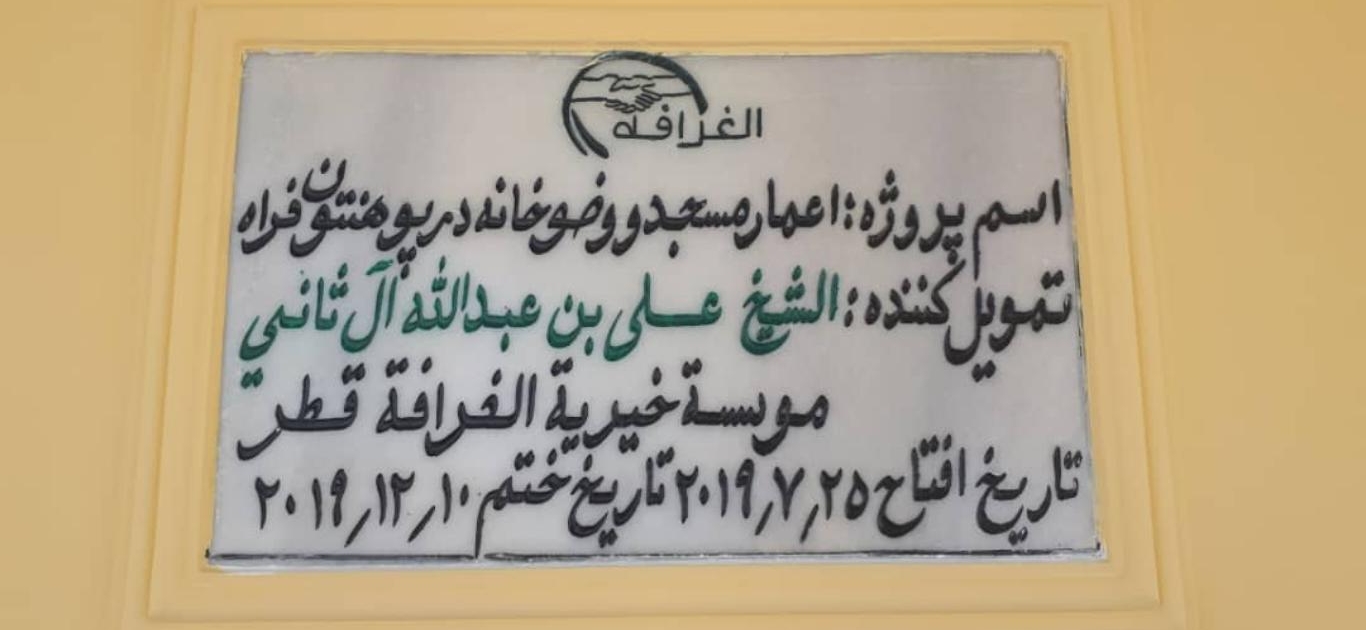 الغرافه
اسم پروژه: اعمار مسجد و وضوخانه در پوهنتون فراه
تمویل کننده: الشيخ علي بن عبدالله آل ثاني
موسسة خيرية الغرافة قطر
تاريخ افتاح ٢٠١٩٫٧٫٢٥ تاريخ ختم ٢٠١٩٫١٢٫١٠